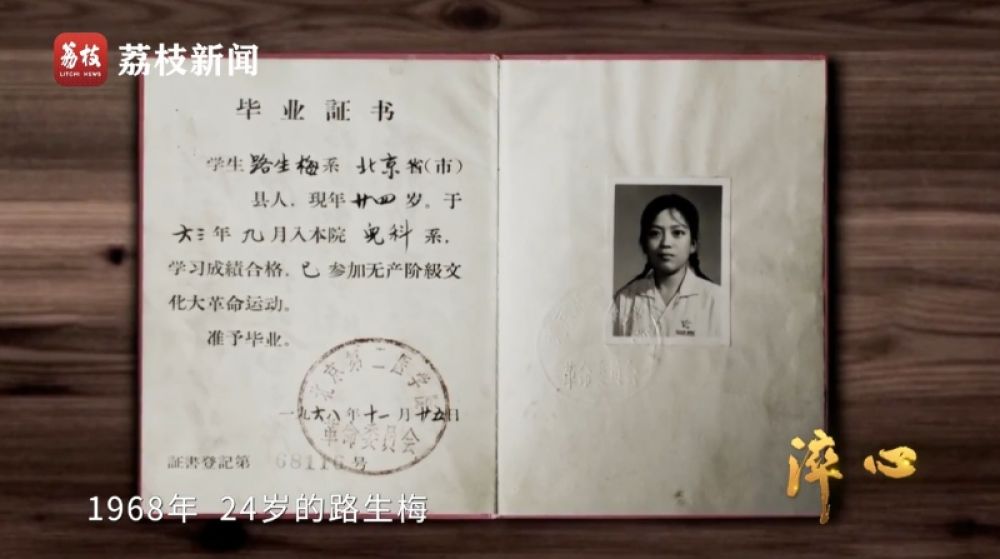 荔枝
LITCHI NEWS
荔枝新闻
毕业証书
学生路生梅系 北京省(市)
县人，现年廿四岁。于
六三年九月入本院 儿科 系，
学习成績合格，已参加无产阶級文
化大革命运动。
准予毕业。
北京第二医学院
革命委员会
一九六八年十一月廿五日
証書登記第 68116 号
革命委员会
淬心
1968年 24岁的路生梅